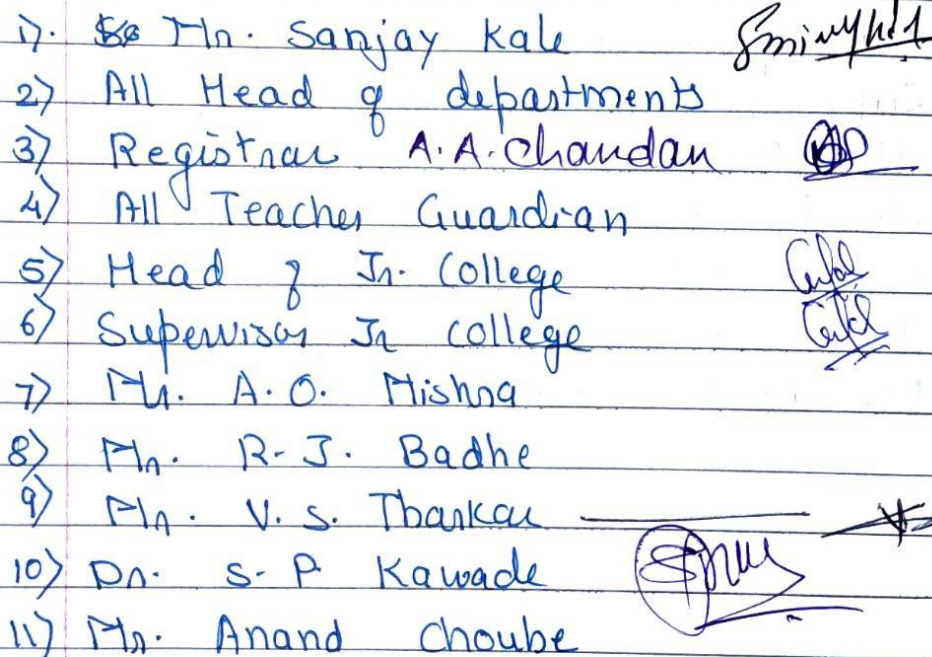 1). Mr. Sanjay Kale
2) All Head of departments
3) Registrar A.A. Chandan
4) All Teacher Guardian
5) Head of Jr. College
6) Supervisor Jr college
7) Mr. A.O. Mishra
8) Mr. R.J. Badhe
9) Mr. V.S. Tharkar
10) Dr. S.P. Kawade
11) Mr. Anand Choube